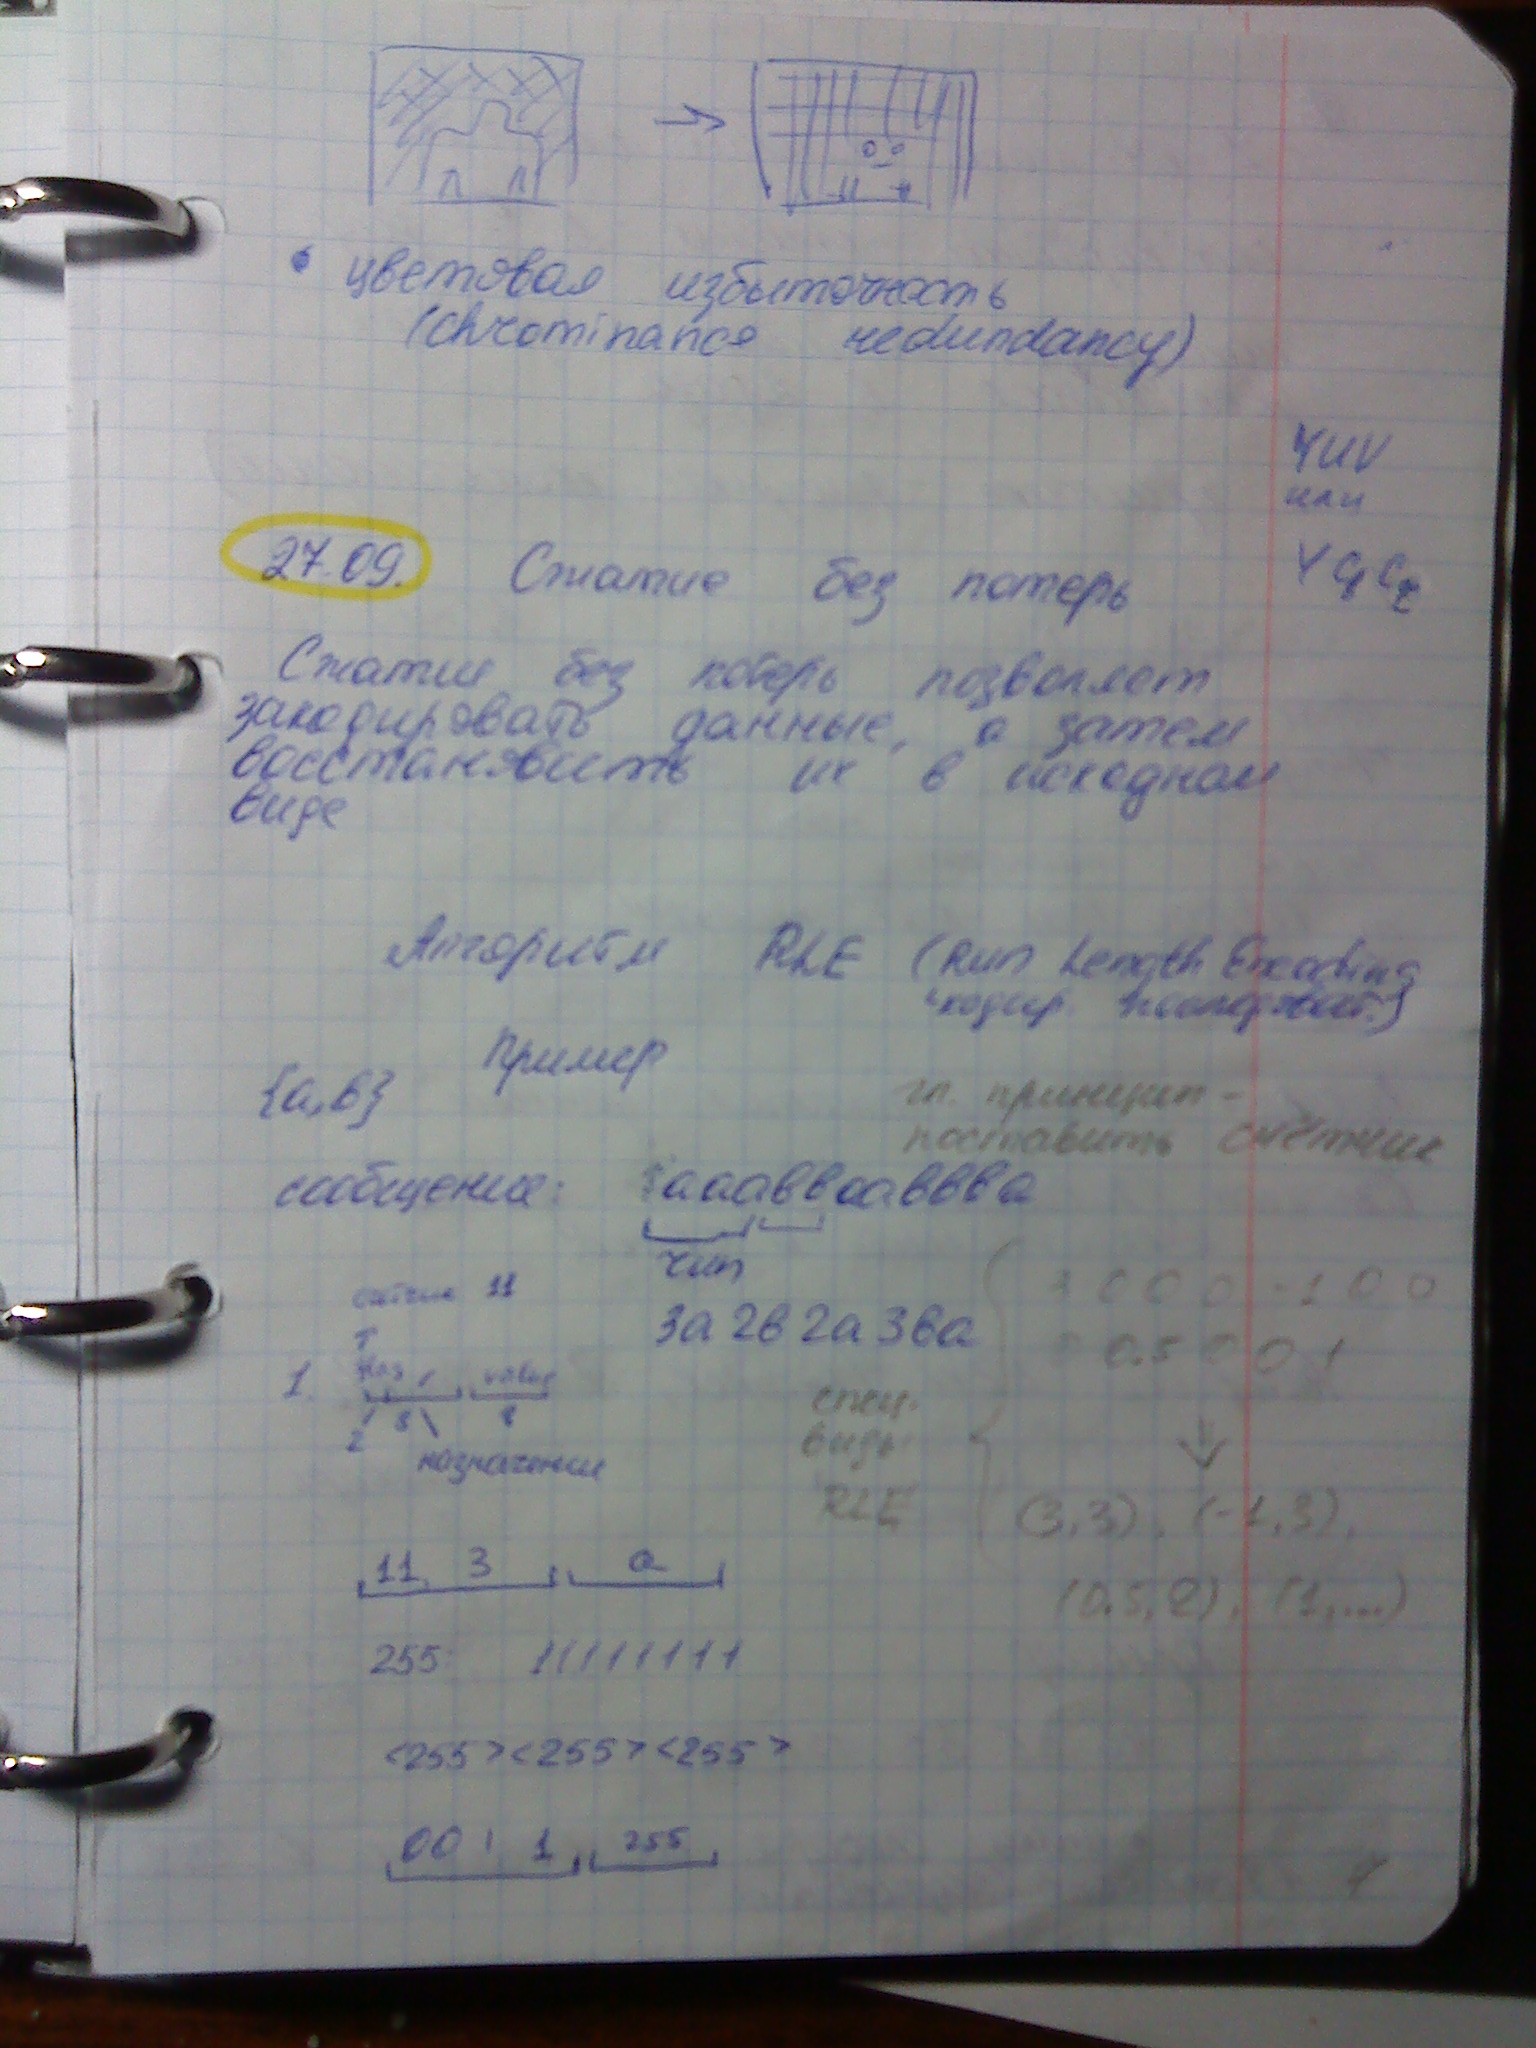 • цветовая избыточность
(chrominance redundancy)
YUV
или
27.09. Сжатие без потерь
Сжатие без потерь позволяет
закодировать данные, а затем
восстановить их в исходном
виде
Алгоритм RLE (Run Length Encoding
кодир. последоват.)
Пример
{a, b}
гл. принцип -
поставить счётчик
сообщение: aaabbaabbba
3a 2b 2a 3ba
11
1. value
2 8 8
назначение
0 0 0 -1 0 0
0.5 0 0 1
спец.
виды
RLE
(3,3), (-1,3),
(0.5,2), (1,...)
11 3 a
255: 11111111
<255><255><255>
00 1 255